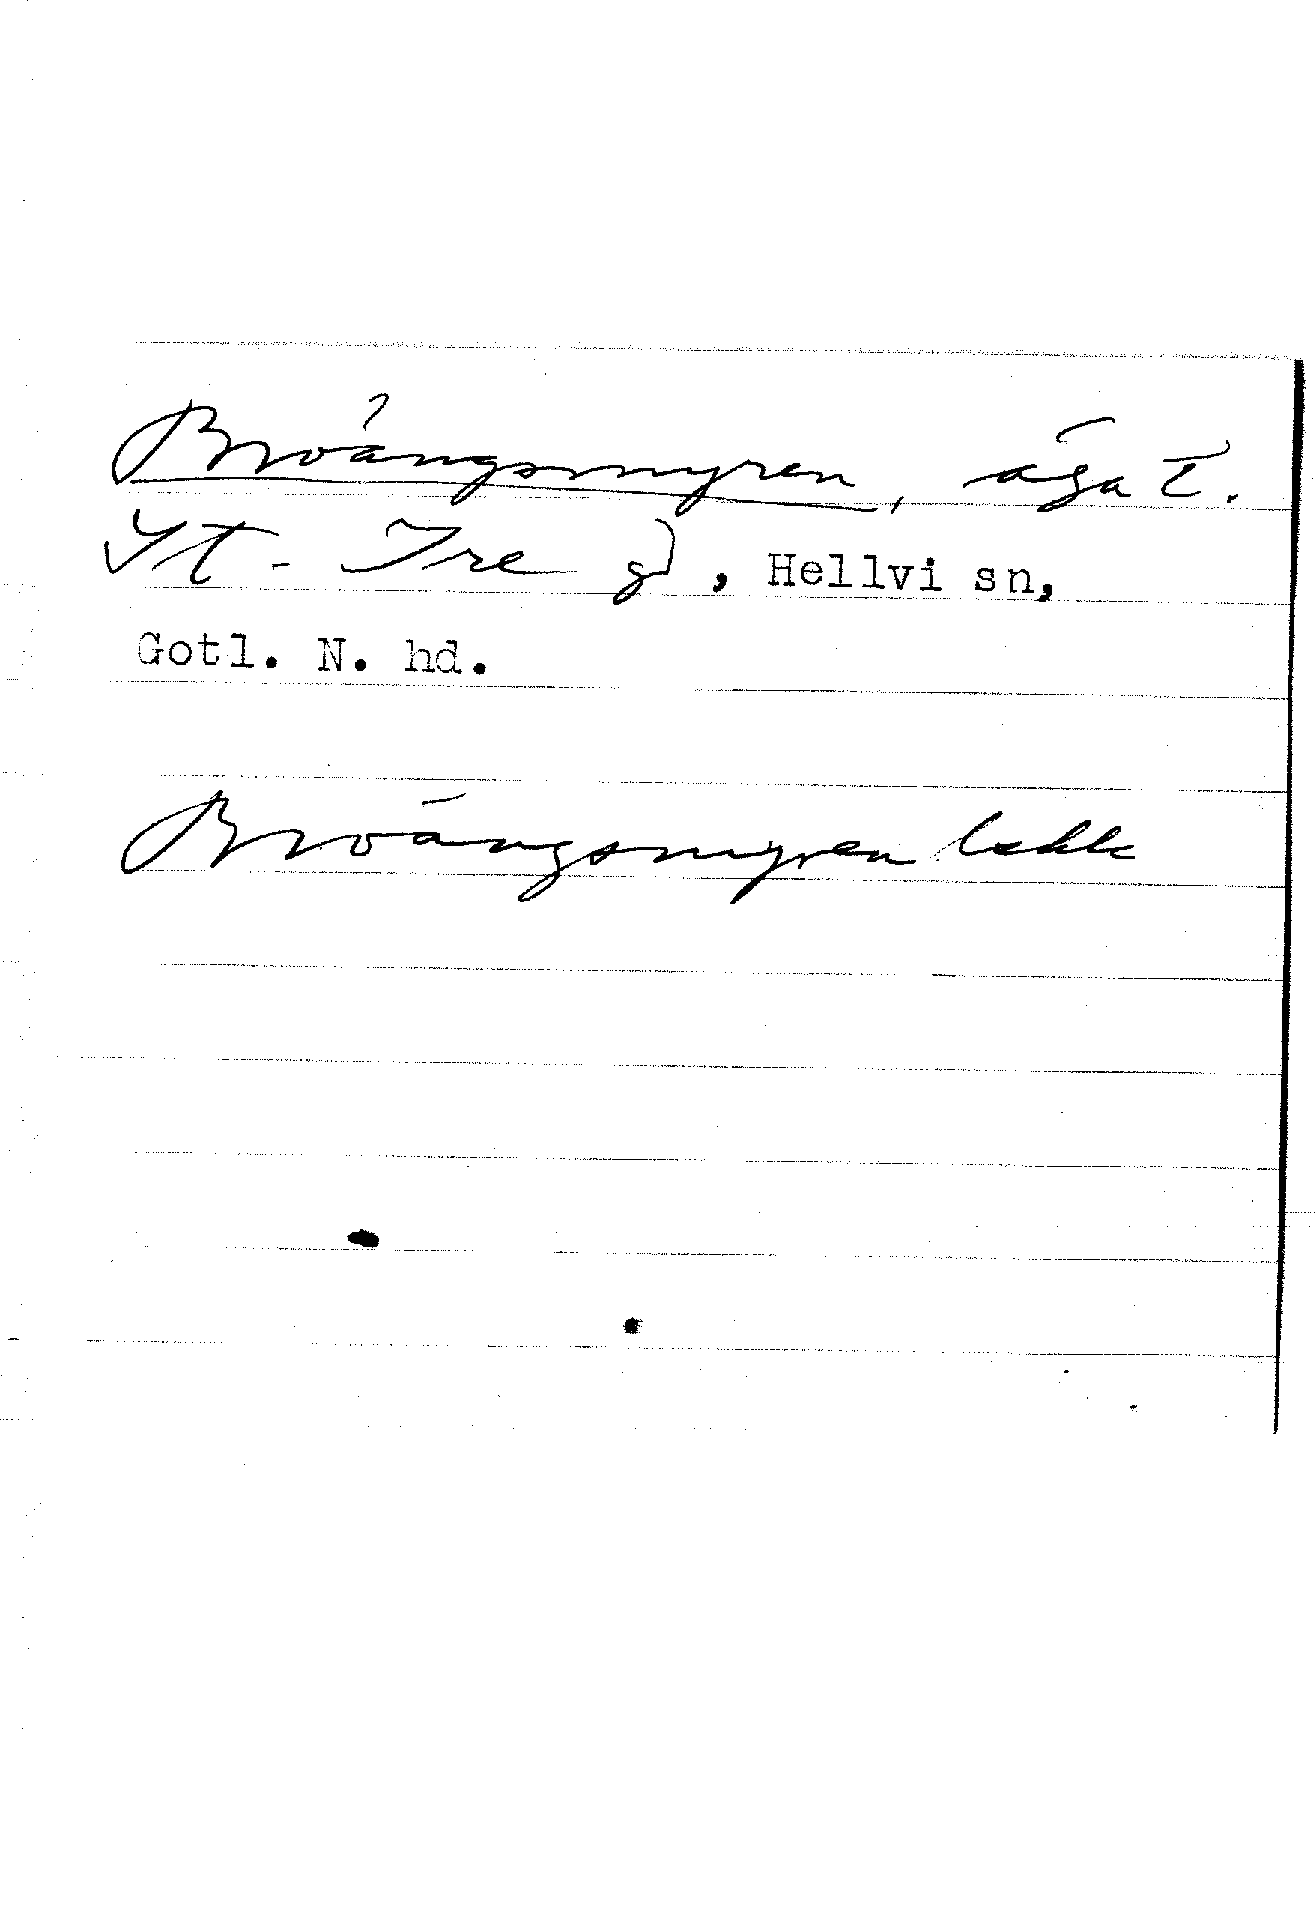 Broängsmyren, äga t.
St. Ire gd, Hellvi sn,
Gotl. N. hd.
Broängsmyren